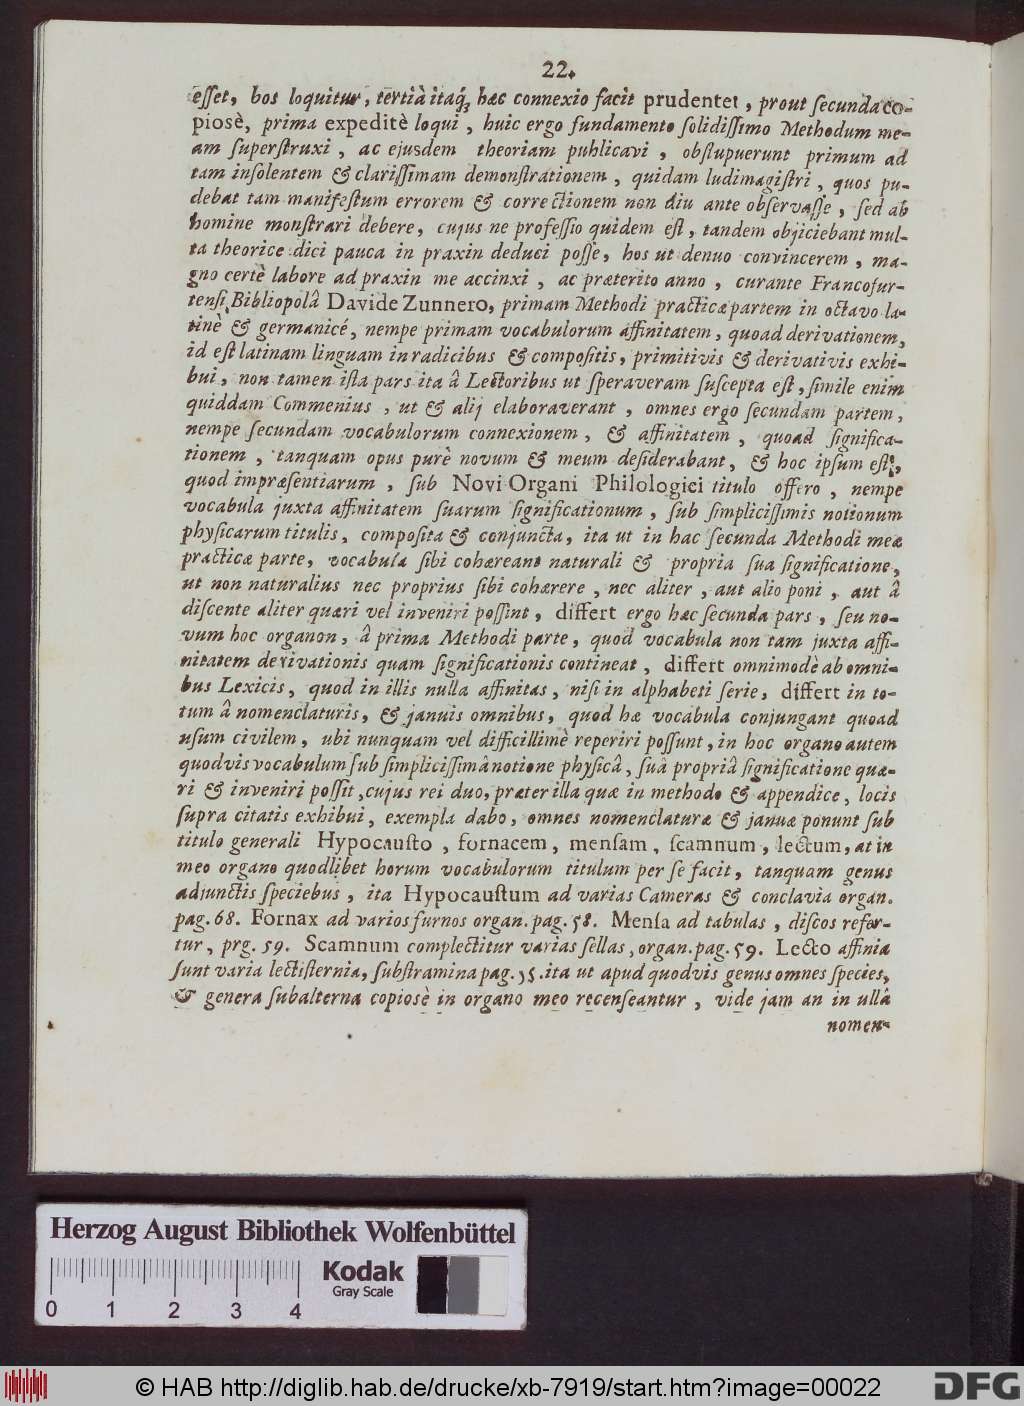 22.
esset, bos loquitur, tertiâ itaq́; hæc connexio facit prudentet, prout secunda co-
piosè, prima expeditè loqui, huic ergo fundamento solidissimo Methodum me-
am superstruxi, ac ejusdem theoriam publicavi, obstupuerunt primum ad
tam insolentem & clarissimam demonstrationem, quidam ludimagistri, quos pu-
debat tam manifestum errorem & correctionem non diu ante observasse, sed ab
homine monstrari debere, cujus ne professio quidem est, tandem objiciebant mul-
ta theorice dici pauca in praxin deduci posse, hos ut denuo convincerem, ma-
gno certè labore ad praxin me accinxi, ac præterito anno, curante Francofur-
tensi Bibliopolâ Davide Zunnero, primam Methodi practicæ partem in octavo la-
tinè & germanicé, nempe primam vocabulorum affinitatem, quoad derivationem,
id est latinam linguam in radicibus & compositis, primitivis & derivativis exhi-
bui, non tamen ista pars ita â Lectoribus ut speraveram suscepta est, simile enim
quiddam Commenius, ut & alij elaboraverant, omnes ergo secundam partem,
nempe secundam vocabulorum connexionem, & affinitatem, quoad significa-
tionem, tanquam opus purè novum & meum desiderabant, & hoc ipsum est,
quod impræsentiarum, sub Novi Organi Philologici titulo offero, nempe
vocabula juxta affinitatem suarum significationum, sub simplicissimis notionum
physicarum titulis, composita & conjuncta, ita ut in hac secunda Methodi meæ
practicæ parte, vocabula sibi cohæreant naturali & propria sua significatione,
ut non naturalius nec proprius sibi cohærere, nec aliter, aut alio poni, aut â
discente aliter quæri vel inveniri possint, differt ergo hæc secunda pars, seu no-
vum hoc organon, â prima Methodi parte, quod vocabula non tam juxta affi-
nitatem derivationis quam significationis contineat, differt omnimodè ab omni-
bus Lexicis, quod in illis nulla affinitas, nisi in alphabeti serie, differt in to-
tum â nomenclaturis, & januis omnibus, quod hæ vocabula conjungant quoad
usum civilem, ubi nunquam vel difficillimè reperiri possunt, in hoc organo autem
quodvis vocabulum sub simplicissimâ notione physicâ, suâ propriâ significatione quæ-
ri & inveniri possit, cujus rei duo, præter illa quæ in methodo & appendice, locis
supra citatis exhibui, exempla dabo, omnes nomenclaturæ & januæ ponunt sub
titulo generali Hypocausto, fornacem, mensam, scamnum, lectum, at in
meo organo quodlibet horum vocabulorum titulum per se facit, tanquam genus
adjunctis speciebus, ita Hypocaustum ad varias Cameras & conclavia organ.
pag. 68. Fornax ad varios furnos organ. pag. 58. Mensa ad tabulas, discos refer-
tur, prg. 59. Scamnum complectitur varias sellas, organ. pag. 59. Lecto affinia
sunt varia lectisternia, substramina pag. 35. ita ut apud quodvis genus omnes species,
& genera subalterna copiosè in organo meo recenseantur, vide jam an in ullâ
nomen-
Herzog August Bibliothek Wolfenbüttel
Kodak
Gray Scale
0 1 2 3 4
© HAB http://diglib.hab.de/drucke/xb-7919/start.htm?image=00022
DFG